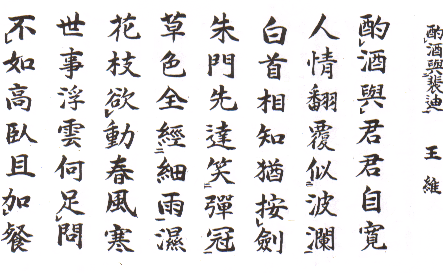 酌酒與裴迪　王維
酌酒與君君自寬
人情翻覆似波瀾
白首相知猶按劍
朱門先達笑彈冠
草色全經細雨濕
花枝欲動春風寒
世事浮雲何足問
不如高臥且加餐